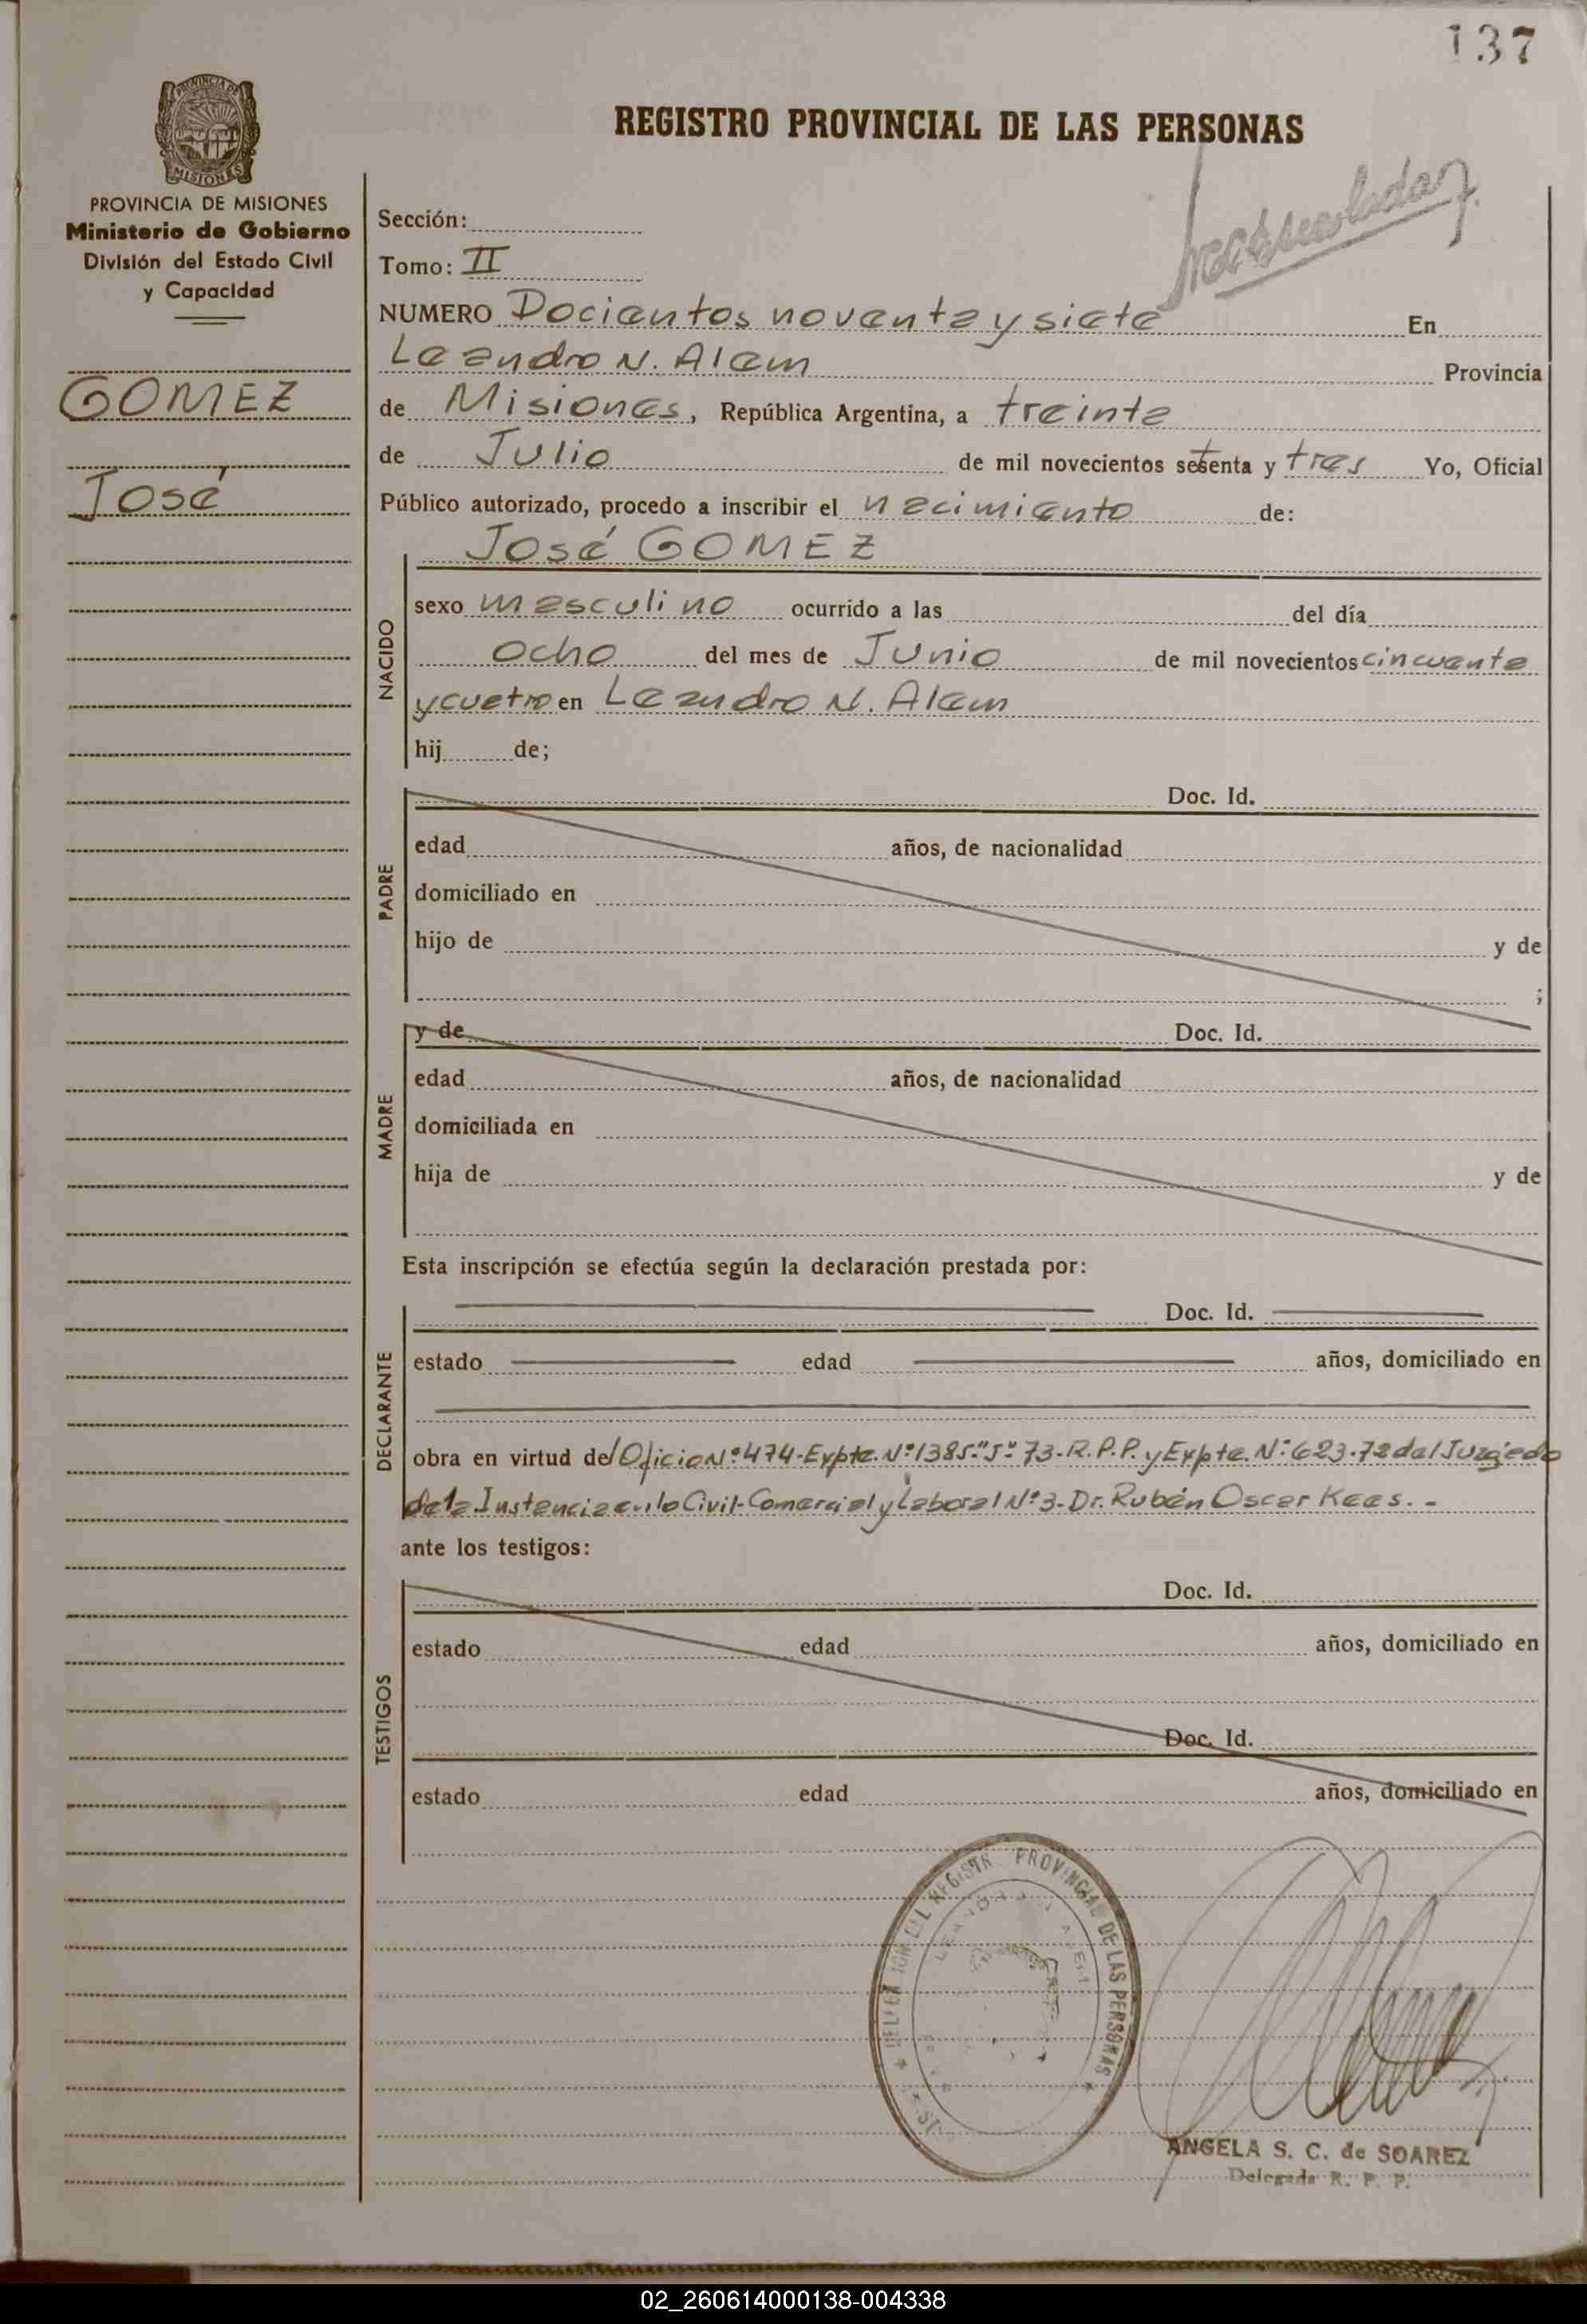 137
REGISTRO PROVINCIAL DE LAS PERSONAS
PROVINCIA DE MISIONES
Ministerio de Gobierno
División del Estado Civil
y Capacidad
GOMEZ
José
Sección:
Tomo: II
NUMERO Docientos noventa y siete En
Leandro N. Alem Provincia
de Misiones, República Argentina, a treinta
de Julio de mil novecientos setenta y tres Yo, Oficial
Público autorizado, procedo a inscribir el nacimiento de:
José GOMEZ
NACIDO
sexo masculino ocurrido a las del día
ocho del mes de Junio de mil novecientos cincuenta
y cuatro en Leandro N. Alem
hij de;
PADRE
Doc. Id.
edad años, de nacionalidad
domiciliado en
hijo de y de
;
MADRE
y de Doc. Id.
edad años, de nacionalidad
domiciliada en
hija de y de
Esta inscripción se efectúa según la declaración prestada por:
DECLARANTE
Doc. Id.
estado edad años, domiciliado en
obra en virtud del Oficio Nº 474-Expte. Nº 1385-"J"-73-R.P.P. y Expte. Nº 623-72 del Juzgado
de 1a Instancia en lo Civil-Comercial y Laboral Nº 3-Dr. Rubén Oscar Kees.-
ante los testigos:
TESTIGOS
Doc. Id.
estado edad años, domiciliado en
Doc. Id.
estado edad años, domiciliado en
PROVINCIAL DE LAS PERSONAS
ANGELA S. C. de SOAREZ
Delegada R. P. P.
02_260614000138-004338